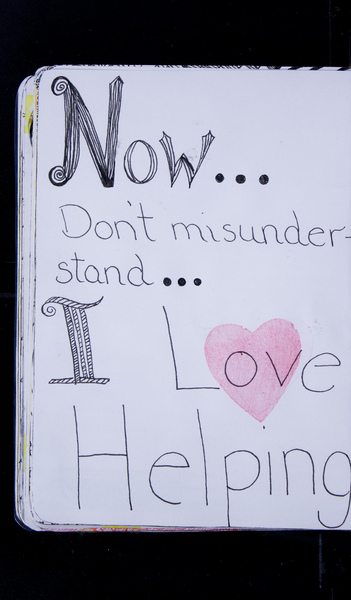 Now...
Don't misunder-
stand...
I Love
Helping